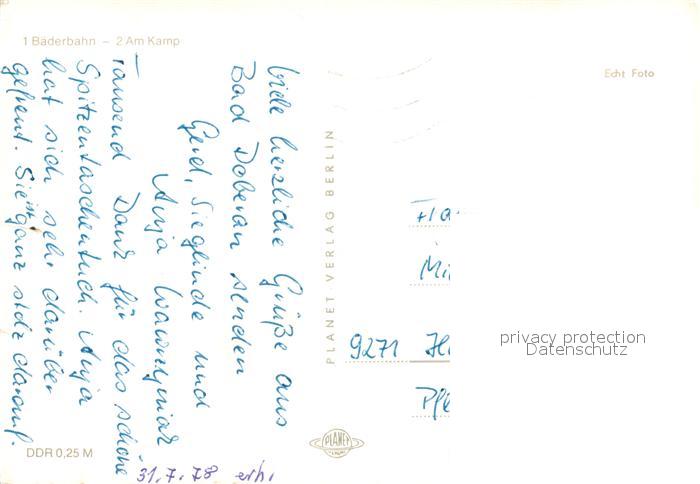 1 Bäderbahn – 2 Am Kamp
Echt Foto
Viele herzliche Grüße aus
Bad Doberan senden
Gerd, Sieglinde und
Anja
Tausend Dank für das schöne
Spitzentaschentuch. Anja
hat sich sehr darüber
gefreut. Sie ist ganz stolz darauf.
PLANET VERLAG BERLIN
9271
privacy protection
Datenschutz
PLANET
DDR 0,25 M
31.7.78 erh.